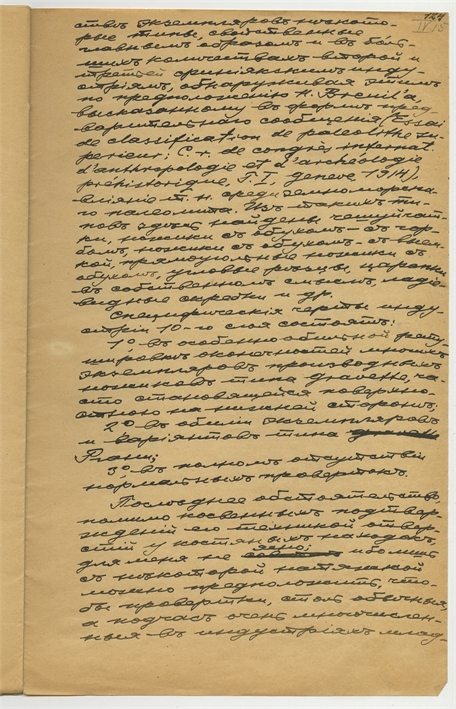 164
IV 15
ство экземпляров нѣкото-
рые типы, свойственные
главнымъ образомъ и въ боль-
шихъ количествахъ второй и
третьей ориньякскимъ инду-
стріямъ, обнаруживая этимъ
по предположенію H. Breuil'a,
высказанному въ формѣ пред-
варительнаго сообщенія (Essai
de classification de paleolithe su-
perieur; C. r. de congrès internat.
d'anthropologie et d'archéologie
préhistorique, T. I, Geneve 1914).
вліяніе т. н. средиземноморска-
го палеолита. Изъ такихъ ти-
повъ здѣсь найдены чешуйчат-
ки, ножики съ обухомъ - съ гор-
бомъ, ножики съ обухомъ - съ выем-
кой, прямоугольные ножики съ
обухомъ, угловые рѣзцы, царапки
въ собственномъ смыслѣ, ладье-
видные скребки и др.
Специфическія черты инду-
стріи 10-го слоя состоятъ:
1º въ особенно обильной рету-
шировкѣ оконечностей многихъ
экземпляровъ производныхъ
ножиковъ типа Gravette, ча-
сто становящейся поверхно-
стною на нижней сторонѣ,
2º въ обиліи экземпляровъ
и варіянтовъ типа
3º въ полномъ отсутствіи
нормальныхъ провертокъ.
Послѣднее обстоятельство
помимо косвенныхъ подтвер-
жденій его техникой отвер-
стій у костяныхъ находокъ,
для меня не ясно, ибо лишь
съ нѣкоторой натяжкой
можно предположить, что-
бы провертки, столь обычныя,
а подчасъ очень многочислен-
ныя въ индустріяхъ млад-